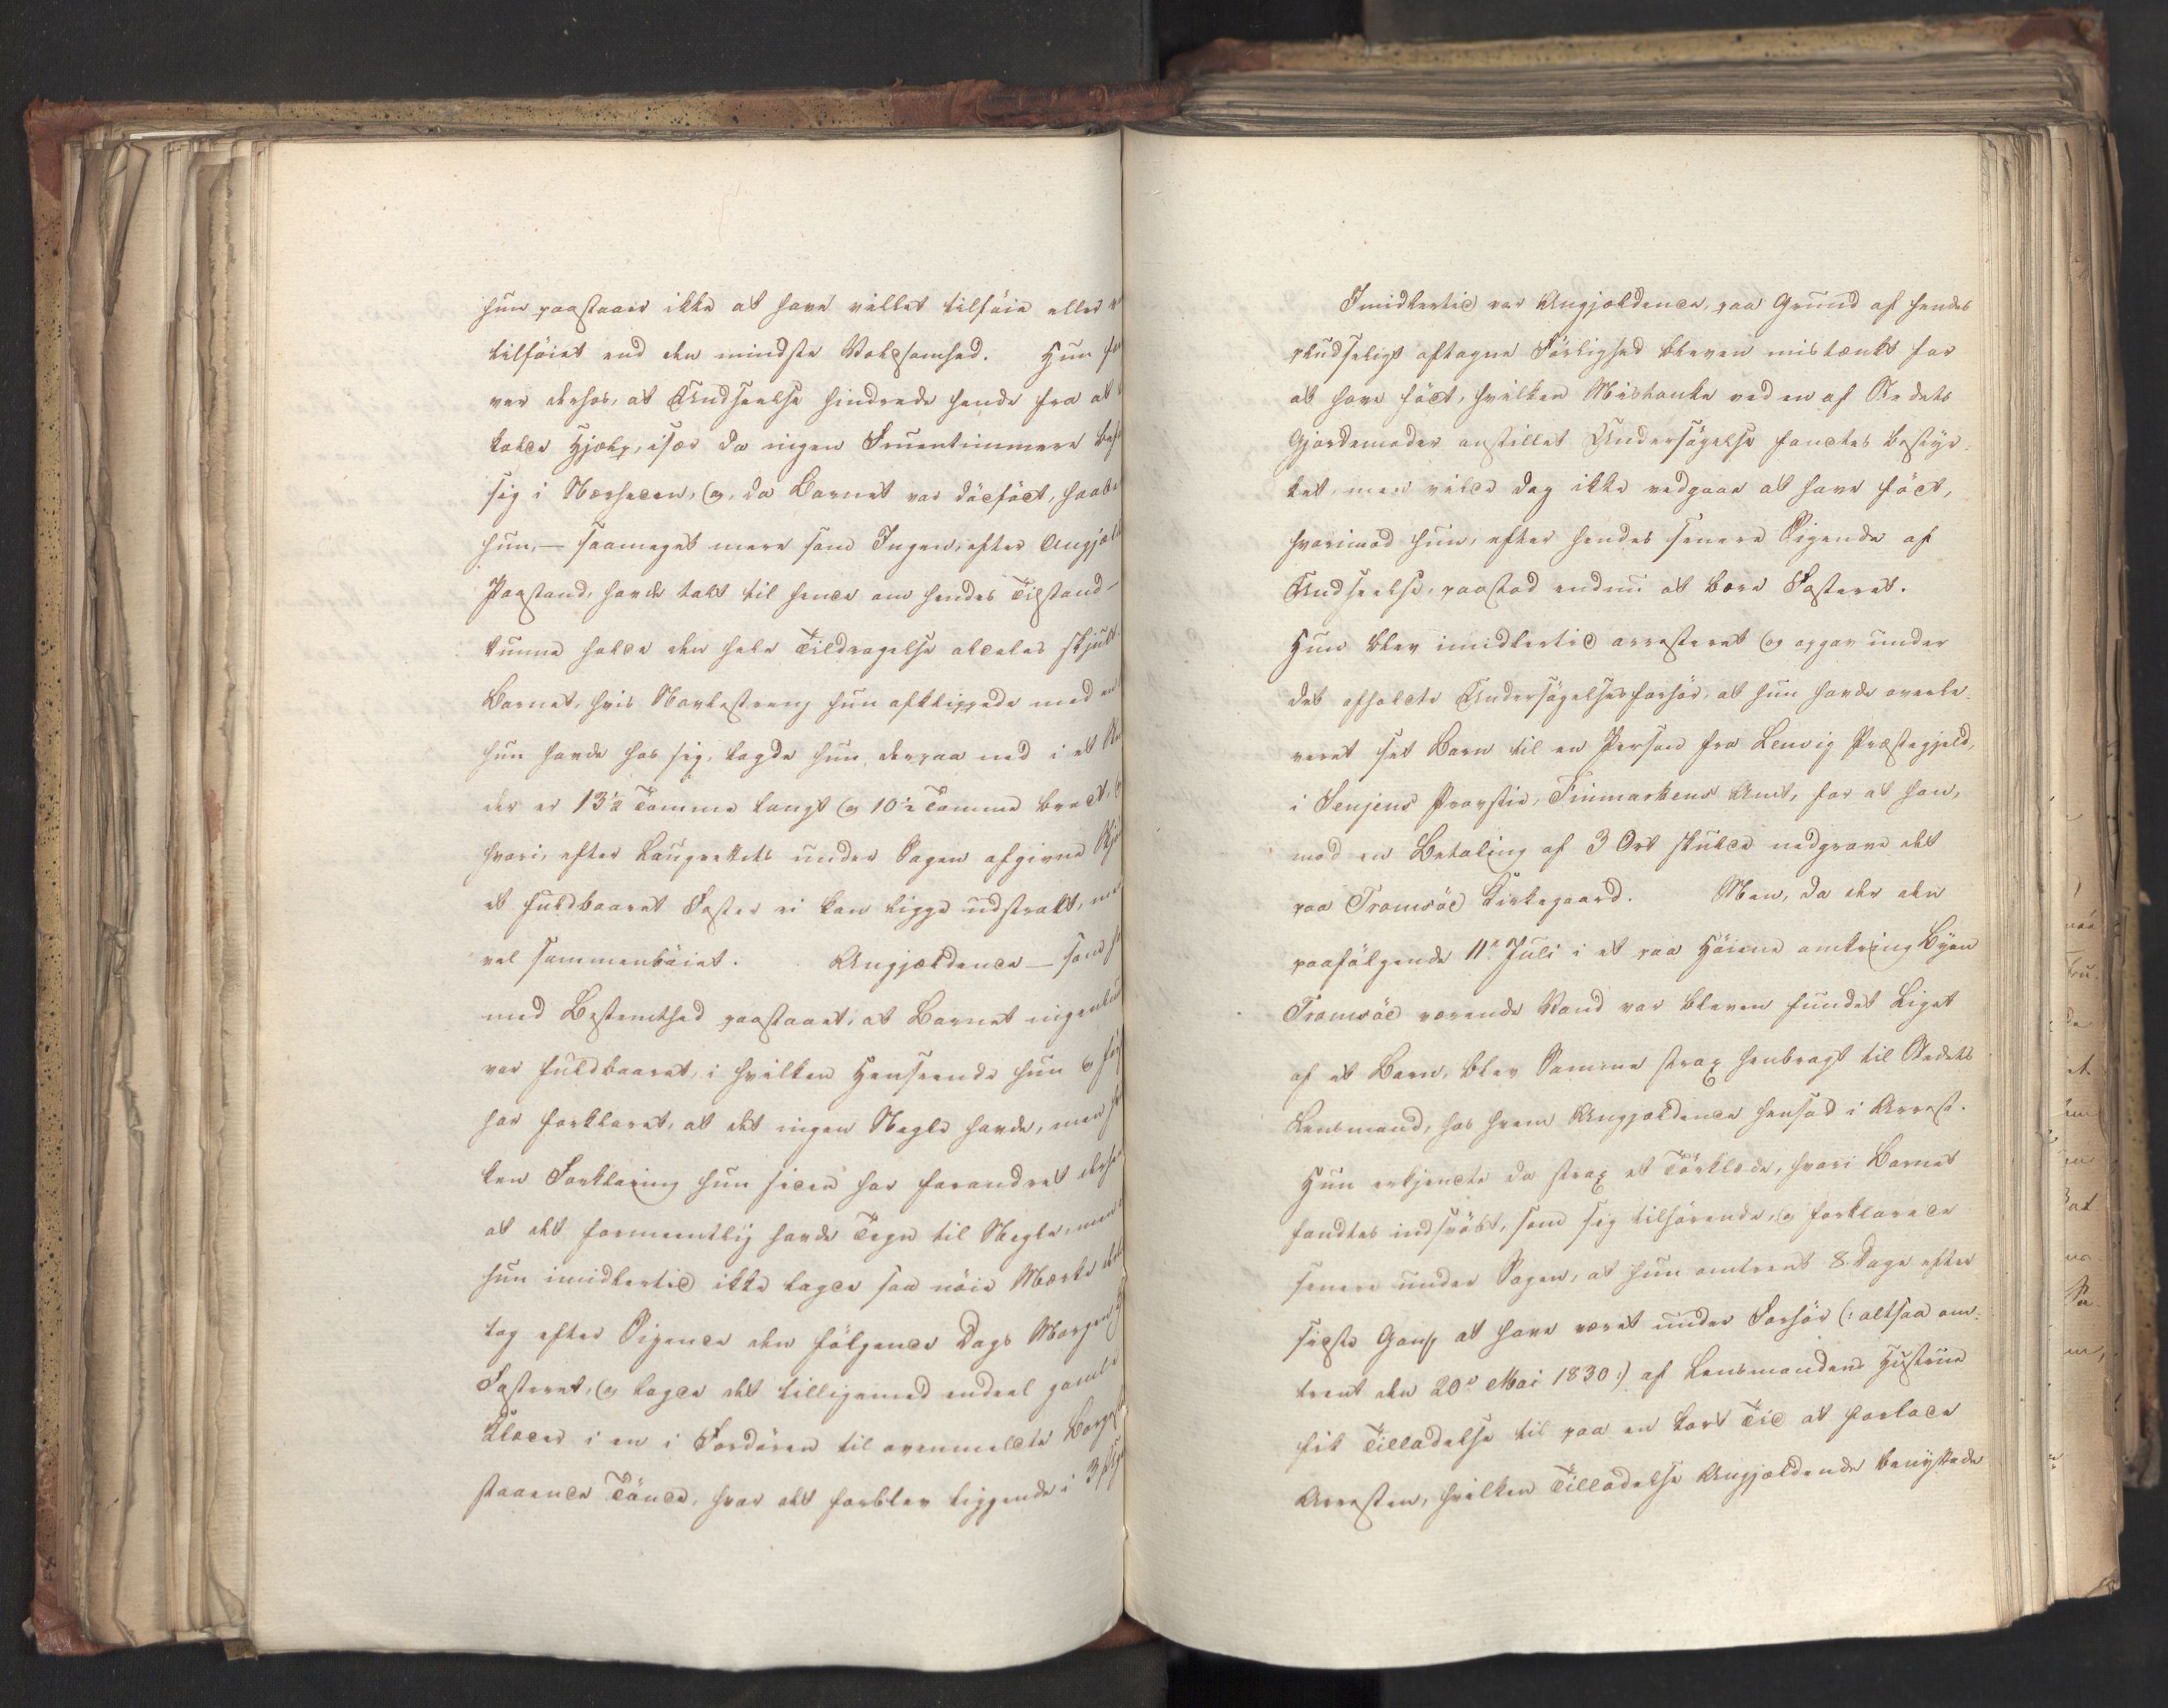 hun paastaaer ikke at have villet tilføie eller
tilføiet end den mindste Voldsomhed. Hun
var derhos, at Undseelse hindrede hende fra at
kalde Hjælp, især da ingen Fruentimmere
sig i Nærheden, og, da Barnet var dødfødt, haab
hun, — saameget mere som Ingen, efter Angjæld
Paastand, havde talt til hende om hendes Tilstand —
kunne holde den hele Tildragelse aldeles skjult.
Barnet, hvis Navlestreng hun afklippede med en
hun havde hos sig, lagde hun derpaa ned i et
der er 13½ Tomme langt og 10½ Tomme bredt,
hvori, efter Laugrettets under Sagen afgivne
et fuldbaaret Foster ei kan ligge udstrakt, men
vel sammenbøiet. Angjældende — som
med Bestemthed paastaaet, at Barnet ingenlun
var fuldbaaret, i hvilken Henseende hun og
har forklaret, at det ingen Negle havde, men
ken Forklaring hun siden har forandret
at det formeentlig havde Tegn til Negle, men
hun imidlertid ikke lagde saa nøie Mærke
tog efter Sigende den følgende Dags Morgen
Fosteret, og lagde det tilligemed endeel gamle
Klæder i en i Fordøren til ovenmeldte
staaende Tønde, hvor det forblev liggende i 3
Imidlertid var Angjældende, paa Grund af hendes
pludseligt aftagne Førlighed bleven mistænkt for
at have født, hvilken Mistanke ved en af Stedets
Gjordemoder anstillet Undersøgelse fandtes bestyr-
ket, men vilde dog ikke vedgaae at have født,
hvorimod hun, efter hendes senere Sigende af
Undseelse, paastod endnu at bære Fosteret.
Hun blev imidlertid arresteret og opgav under
det afholdte Undersøgelsesforhør, at hun havde overle-
veret sit Barn til en Person fra Lenvig Præstegjeld,
i Senjens Provstie, Finmarkens Amt, for at han,
mod en Betaling af 3 Ort skulde nedgrave det
paa Tromsøe Kirkegaard. Men, da der den
paafølgende 11te Juli i et paa Høiene omkring Byen
Tromsøe værende Vand var bleven fundet Liget
af et Barn, blev Samme strax henbragt til Stedets
Lensmand, hos hvem Angjældende hensad i Arrest.
Hun erkjendte da strax et Tørklæde, hvori Barnet
fandtes indsvøbt, som sig tilhørende, og forklarede
senere under Sagen, at hun omtrent 8 Dage efter
sidste Gang at have været under Forhør (: altsaa om-
trent den 20de Mai 1830 :) af Lensmandens Hustrue
fik Tilladelse til paa en kort Tid at forlade
Arresten, hvilken Tilladelse Angjældende benyttede